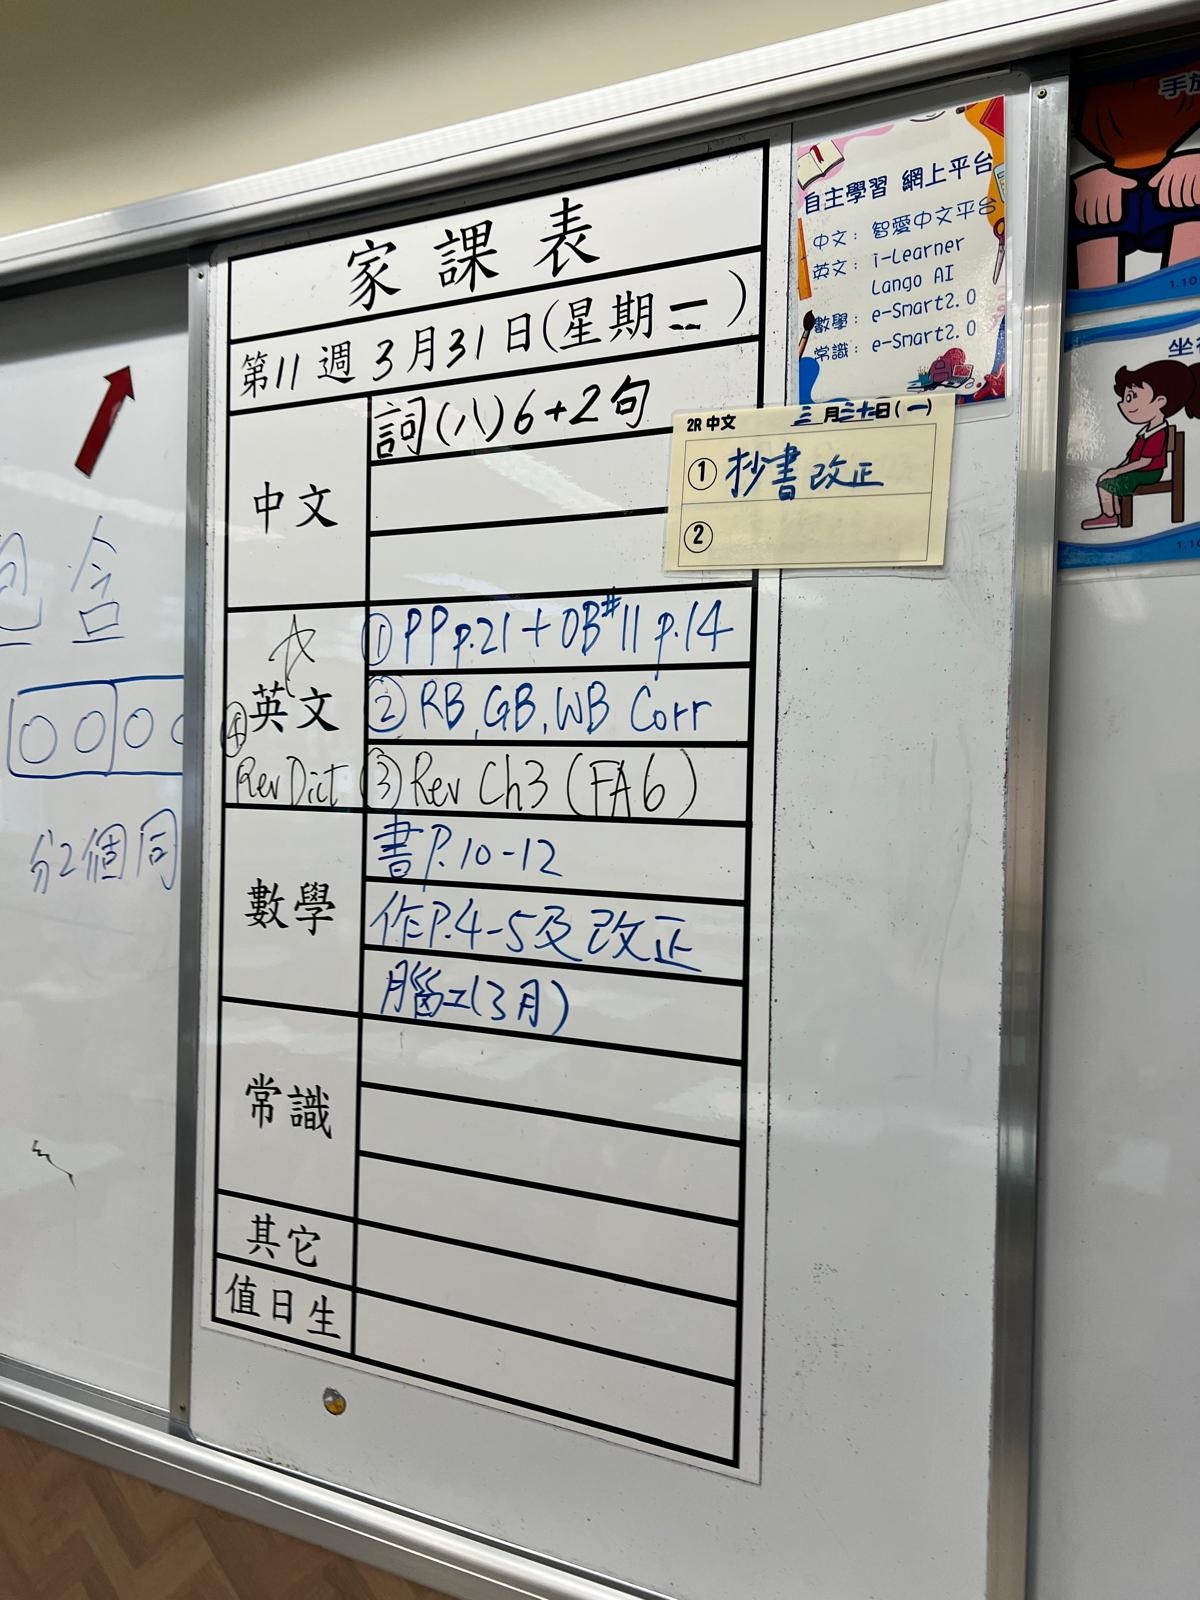 家課表
第11週3月31日(星期二)
中文
詞(八)6+2句
英文
①PP p.21+OB#11 p.14
②RB, GB, WB Corr
③Rev Ch3 (FA6)
④
Rev Dict
數學
書P.10-12
作P.4-5及改正
腦工(3月)
常識
其它
值日生
自主學習 網上平台
中文：智愛中文平台
英文：i-Learner
Lango AI
數學：e-Smart2.0
常識：e-Smart2.0
2R 中文 三月三十日(一)
①抄書改正
②
包含
分2個同